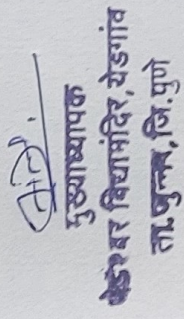 मुख्याध्यापक
विद्यामंदिर, येडगांव
ता. जुन्नर, जि. पुणे